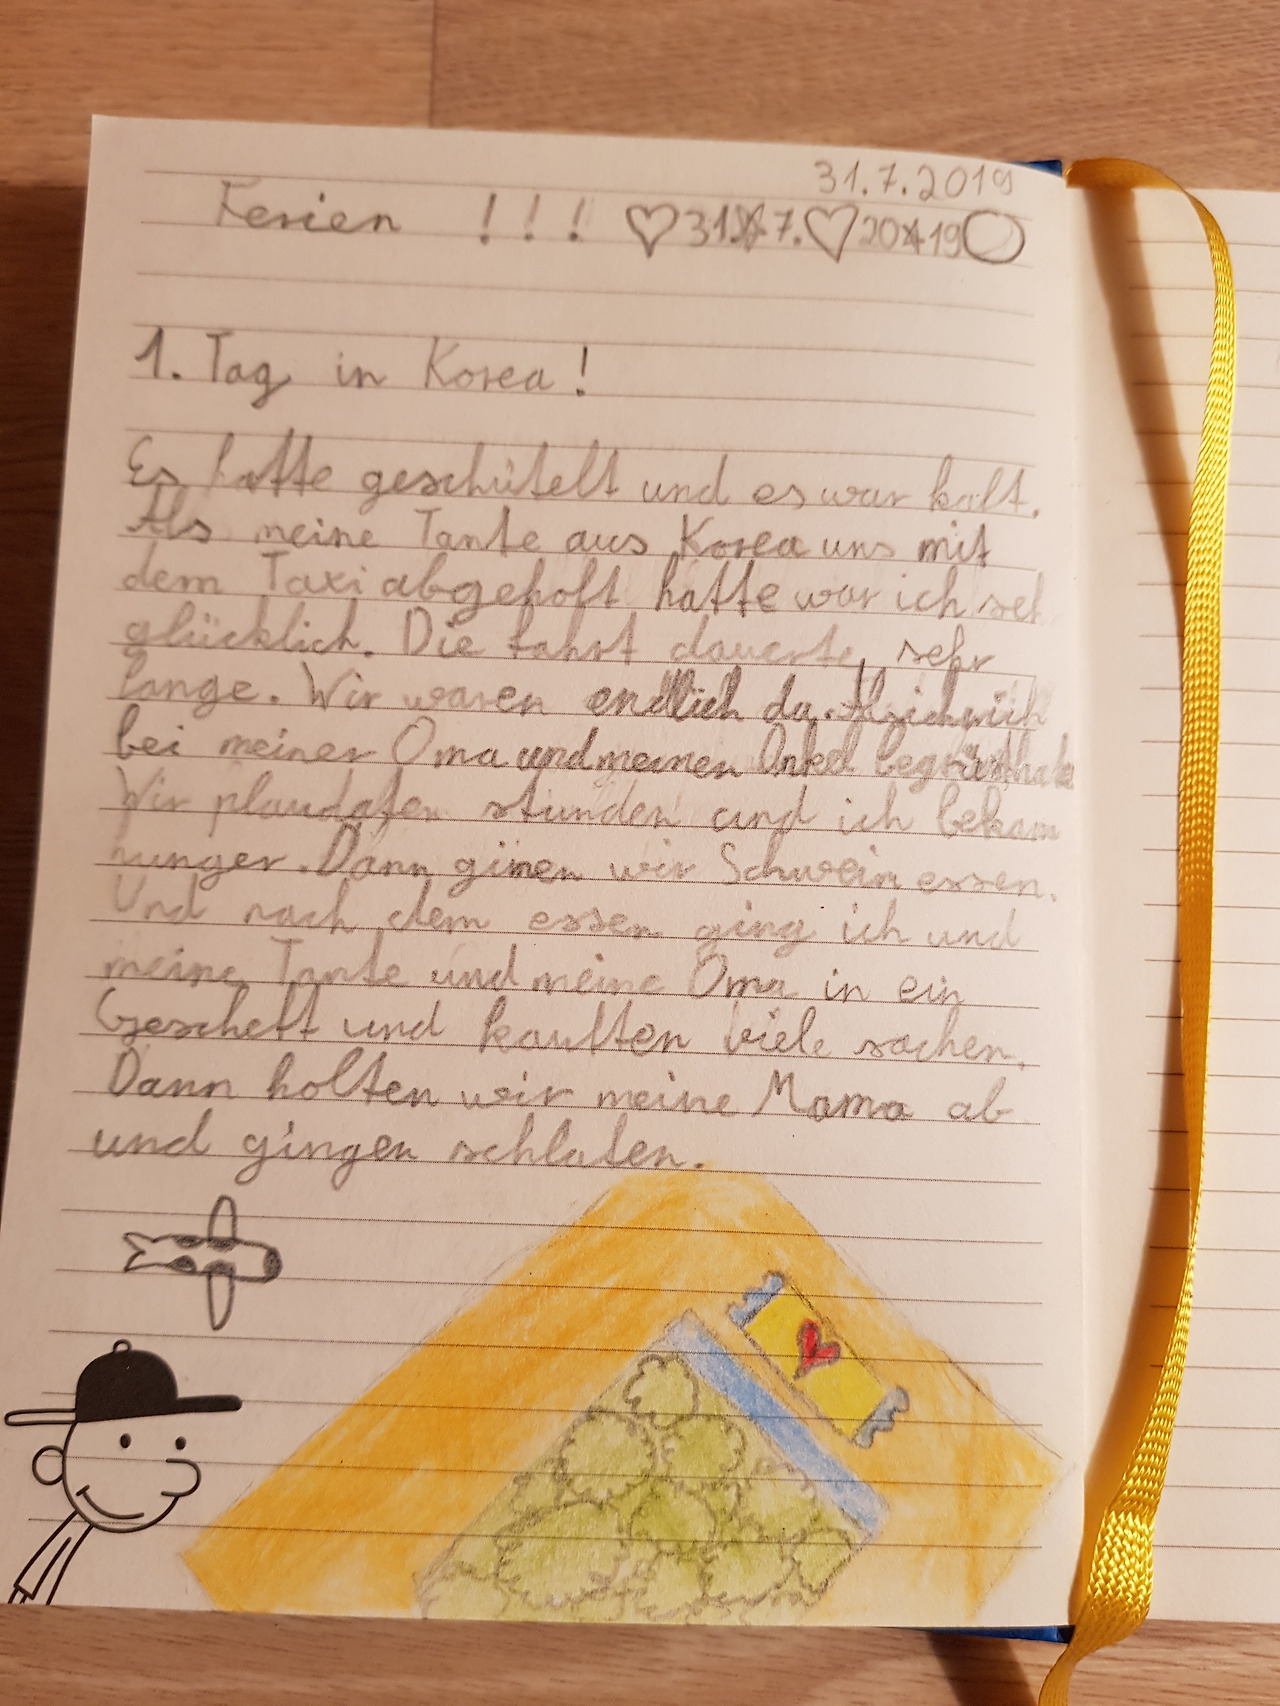 31.7.2019
Ferien !!! ♡31☆7.♡20☆19○
1. Tag in Korea!
Es hatte geschütelt und es war kalt.
Als meine Tante aus Korea uns mit
dem Taxi abgeholt hatte war ich seh
glücklich. Die fahrt dauerte sehr
lange. Wir waren endlich da. Als ich mich
bei meiner Oma und meinen Onkel
Wir plaudaten stunden und ich bekam
hunger. Dann ginen wir Schwein essen.
Und nach dem essen ging ich und
meine Tante und meine Oma in ein
Gescheft und kauften viele sachen.
Dann holten wir meine Mama ab
und gingen schlafen.